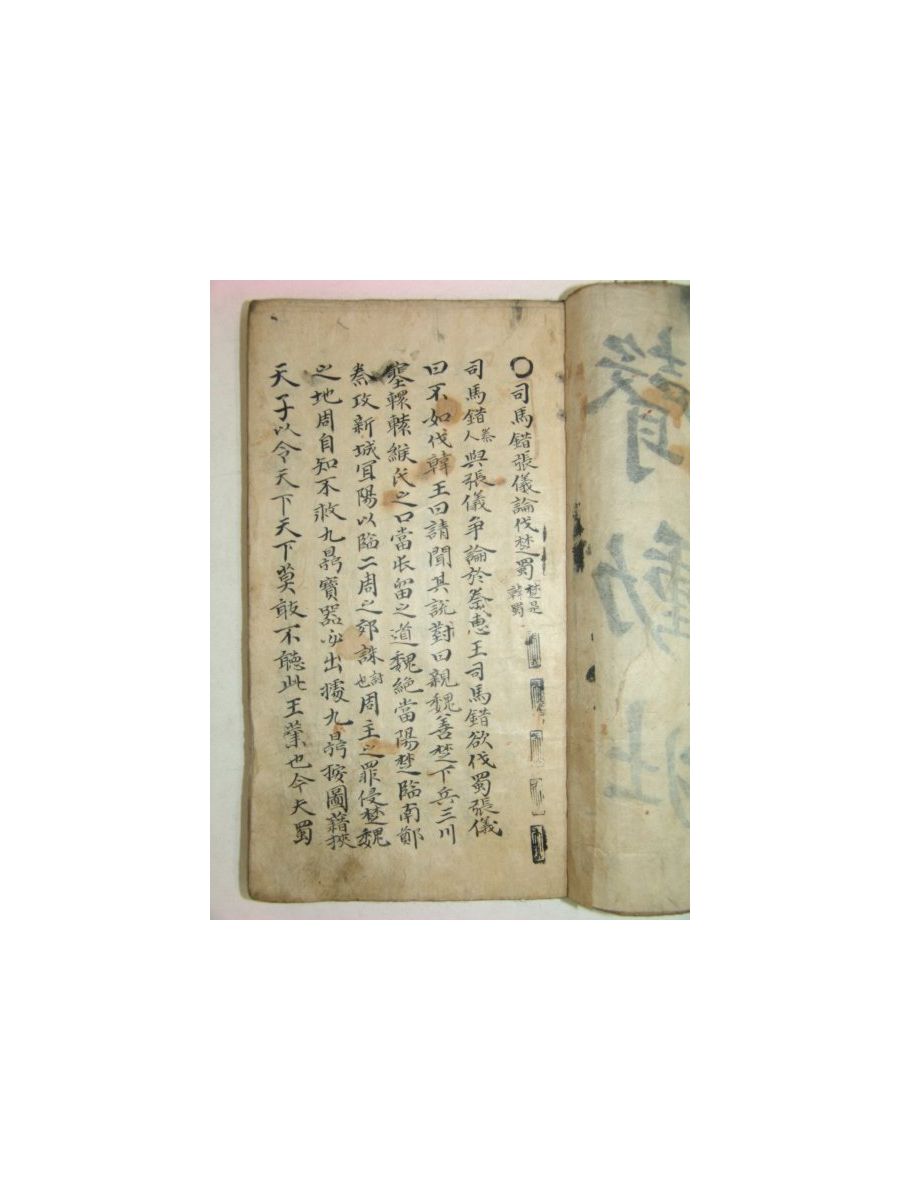 ○司馬錯張儀論伐楚蜀楚是韓蜀
司馬錯秦人與張儀爭論於秦惠王司馬錯欲伐蜀張儀
曰不如伐韓王曰請聞其說對曰親魏善楚下兵三川
塞轘轅緱氏之口當屯留之道魏絶當陽楚臨南鄭
秦攻新城宜陽以臨二周之郊誅討也周主之罪侵楚魏
之地周自知不救九鼎寶器必出據九鼎按圖籍挾
天子以令天下天下莫敢不聽此王業也今夫蜀
動